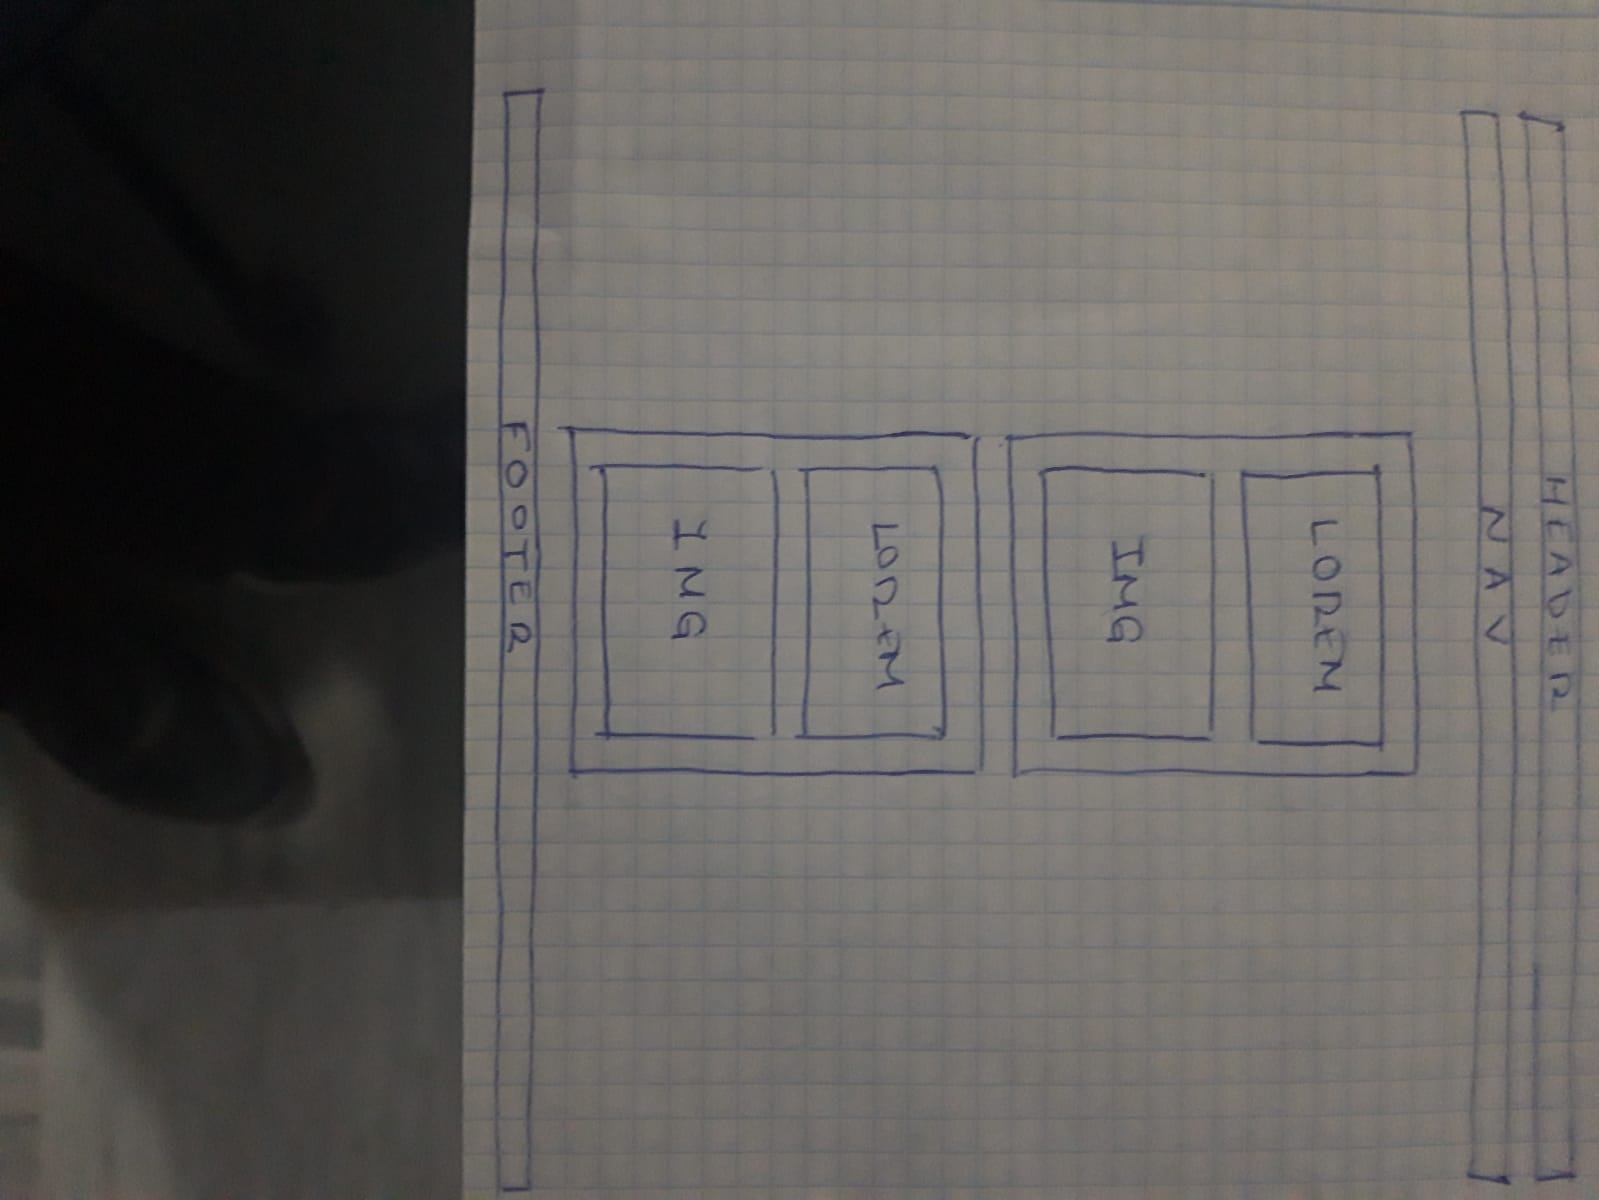 HEADER
NAV
LOREM
IMG
LOREM
IMG
FOOTER